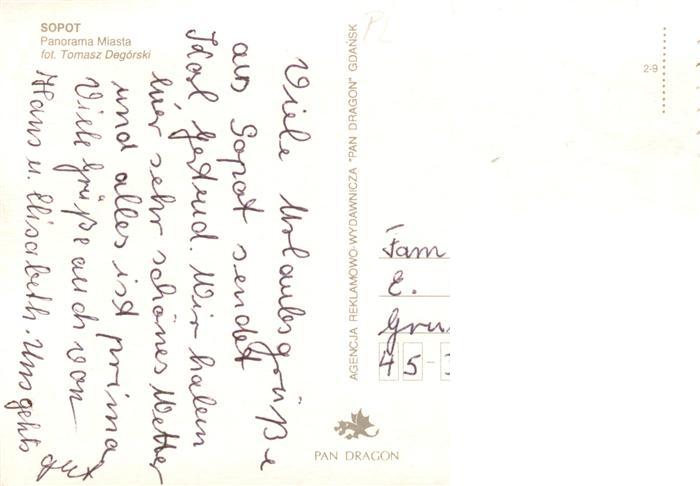 SOPOT
Panorama Miasta
fot. Tomasz Degórski
Viele Urlaubsgrüße
aus Sopot sendet
Gertrud. Wir haben
hier sehr schönes Wetter
und alles ist prima,
Viele Grüße auch von
Hans u. Elisabeth. Uns gehts gut
AGENCJA REKLAMOWO-WYDAWNICZA "PAN DRAGON" GDAŃSK
PL
2-9
Fam
E.
Gru
45-
PAN DRAGON